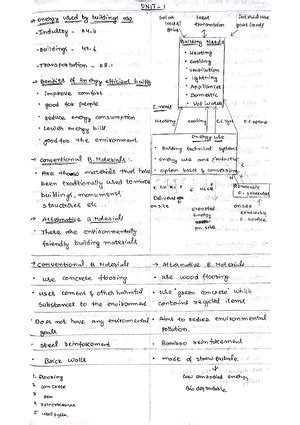 UNIT - 1
Energy used by buildings
Industry - 24.4
Buildings - 47.6
Transportation - 28.1
Benefits of energy efficient
improve comfort
good for people
reduce energy consumption
Lower energy bill
good for the environment
Conventional B. Materials :-
Are those materials that have
been traditionally used to make
buildings, monuments,
structures etc.
Alternative B. Materials
These are environmentally
friendly building materials
Solar
heat
transmission
Internal heat
gains
Building Needs
Heating
cooling
ventilation
lightning
Appliances
Domestic
Hot water
Heating
cooling
Energy use
Building technical systems
Energy use and production
System losses & conversions
Delivered
on site
exported
energy
on site
Renewable
on site
renewable
Conventional B. Materials
Alternative B. Materials
use concrete flooring
use wood flooring
uses cement & other harmful
substances to the environment
use "green concrete" which
contains recycled items
Does not have any environmental
goals
Aims to reduce environmental
pollution.
steel reinforcement
Bamboo reinforcement
Brick walls
made of straw bale
1. flooring
2. concrete
3.
4. Reinforcement
5. wall
low embodied energy
Biodegradable